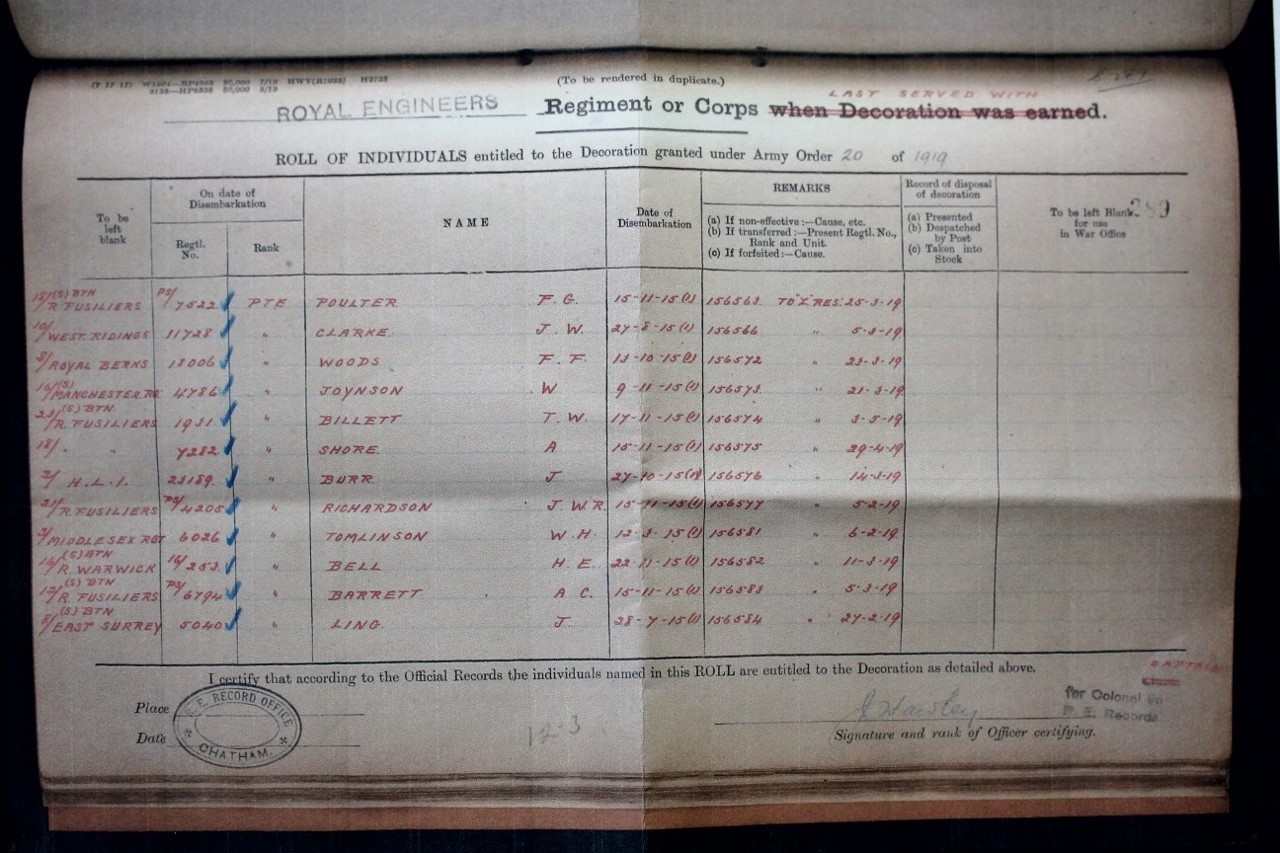 (To be rendered in duplicate.)
LAST SERVED WITH
ROYAL ENGINEERS Regiment or Corps when Decoration was earned.
ROLL OF INDIVIDUALS entitled to the Decoration granted under Army Order 20 of 1919
To be left blank
On date of Disembarkation
Regtl. No.
Rank
NAME
Date of Disembarkation
REMARKS
(a) If non-effective:—Cause, etc.
(b) If transferred:—Present Regtl. No., Rank and Unit.
(c) If forfeited:—Cause.
Record of disposal of decoration
(a) Presented
(b) Despatched by Post
(c) Taken into Stock
To be left Blank for use in War Office
289
15/(S) BTN R. FUSILIERS PS/7522 PTE POULTER F. G. 15-11-15(1) 156563 TO Z RES: 25-3-19
10/WEST RIDINGS 11728 " CLARKE. J. W. 27-8-15(1) 156566 " 5-3-19
8/ROYAL BERKS 18006 " WOODS F. F. 156572 " 23-3-19
16/(S) MANCHESTER RE 4786 " JOYNSON W 9-11-15(1) 156573 " 21-3-19
23/(S) BTN R. FUSILIERS 1931 " BILLETT T. W. 17-11-15(1) 156574 " 3-5-19
18/ " " 7282 " SHORE. A 15-11-15(1) 156575 " 29-4-19
2/ H.L.I. 23189 " BURR J 27-10-15 156576 " 14-3-19
21/R. FUSILIERS PS/4205 " RICHARDSON J. W. R. 15-11-15(1) 156577 " 5-2-19
MIDDLESEX RGT 6026 " TOMLINSON W. H. 12-3-15(1) 156581 " 6-2-19
16/(S) BTN R. WARWICK 16/253 " BELL H. E. 22-11-15(1) 156582 " 11-3-19
(S) BTN R. FUSILIERS PS/6794 " BARRETT A C. 15-11-15(1) 156583 " 5-3-19
8/(S) BTN EAST SURREY 5040 " LING. J. 28-7-15(1) 156584 " 27-2-19
I certify that according to the Official Records the individuals named in this ROLL are entitled to the Decoration as detailed above.
CAPTAIN
Place
Date
R. E. RECORD OFFICE
CHATHAM.
12-3
for Colonel i/c
R. E. Records
Signature and rank of Officer certifying.